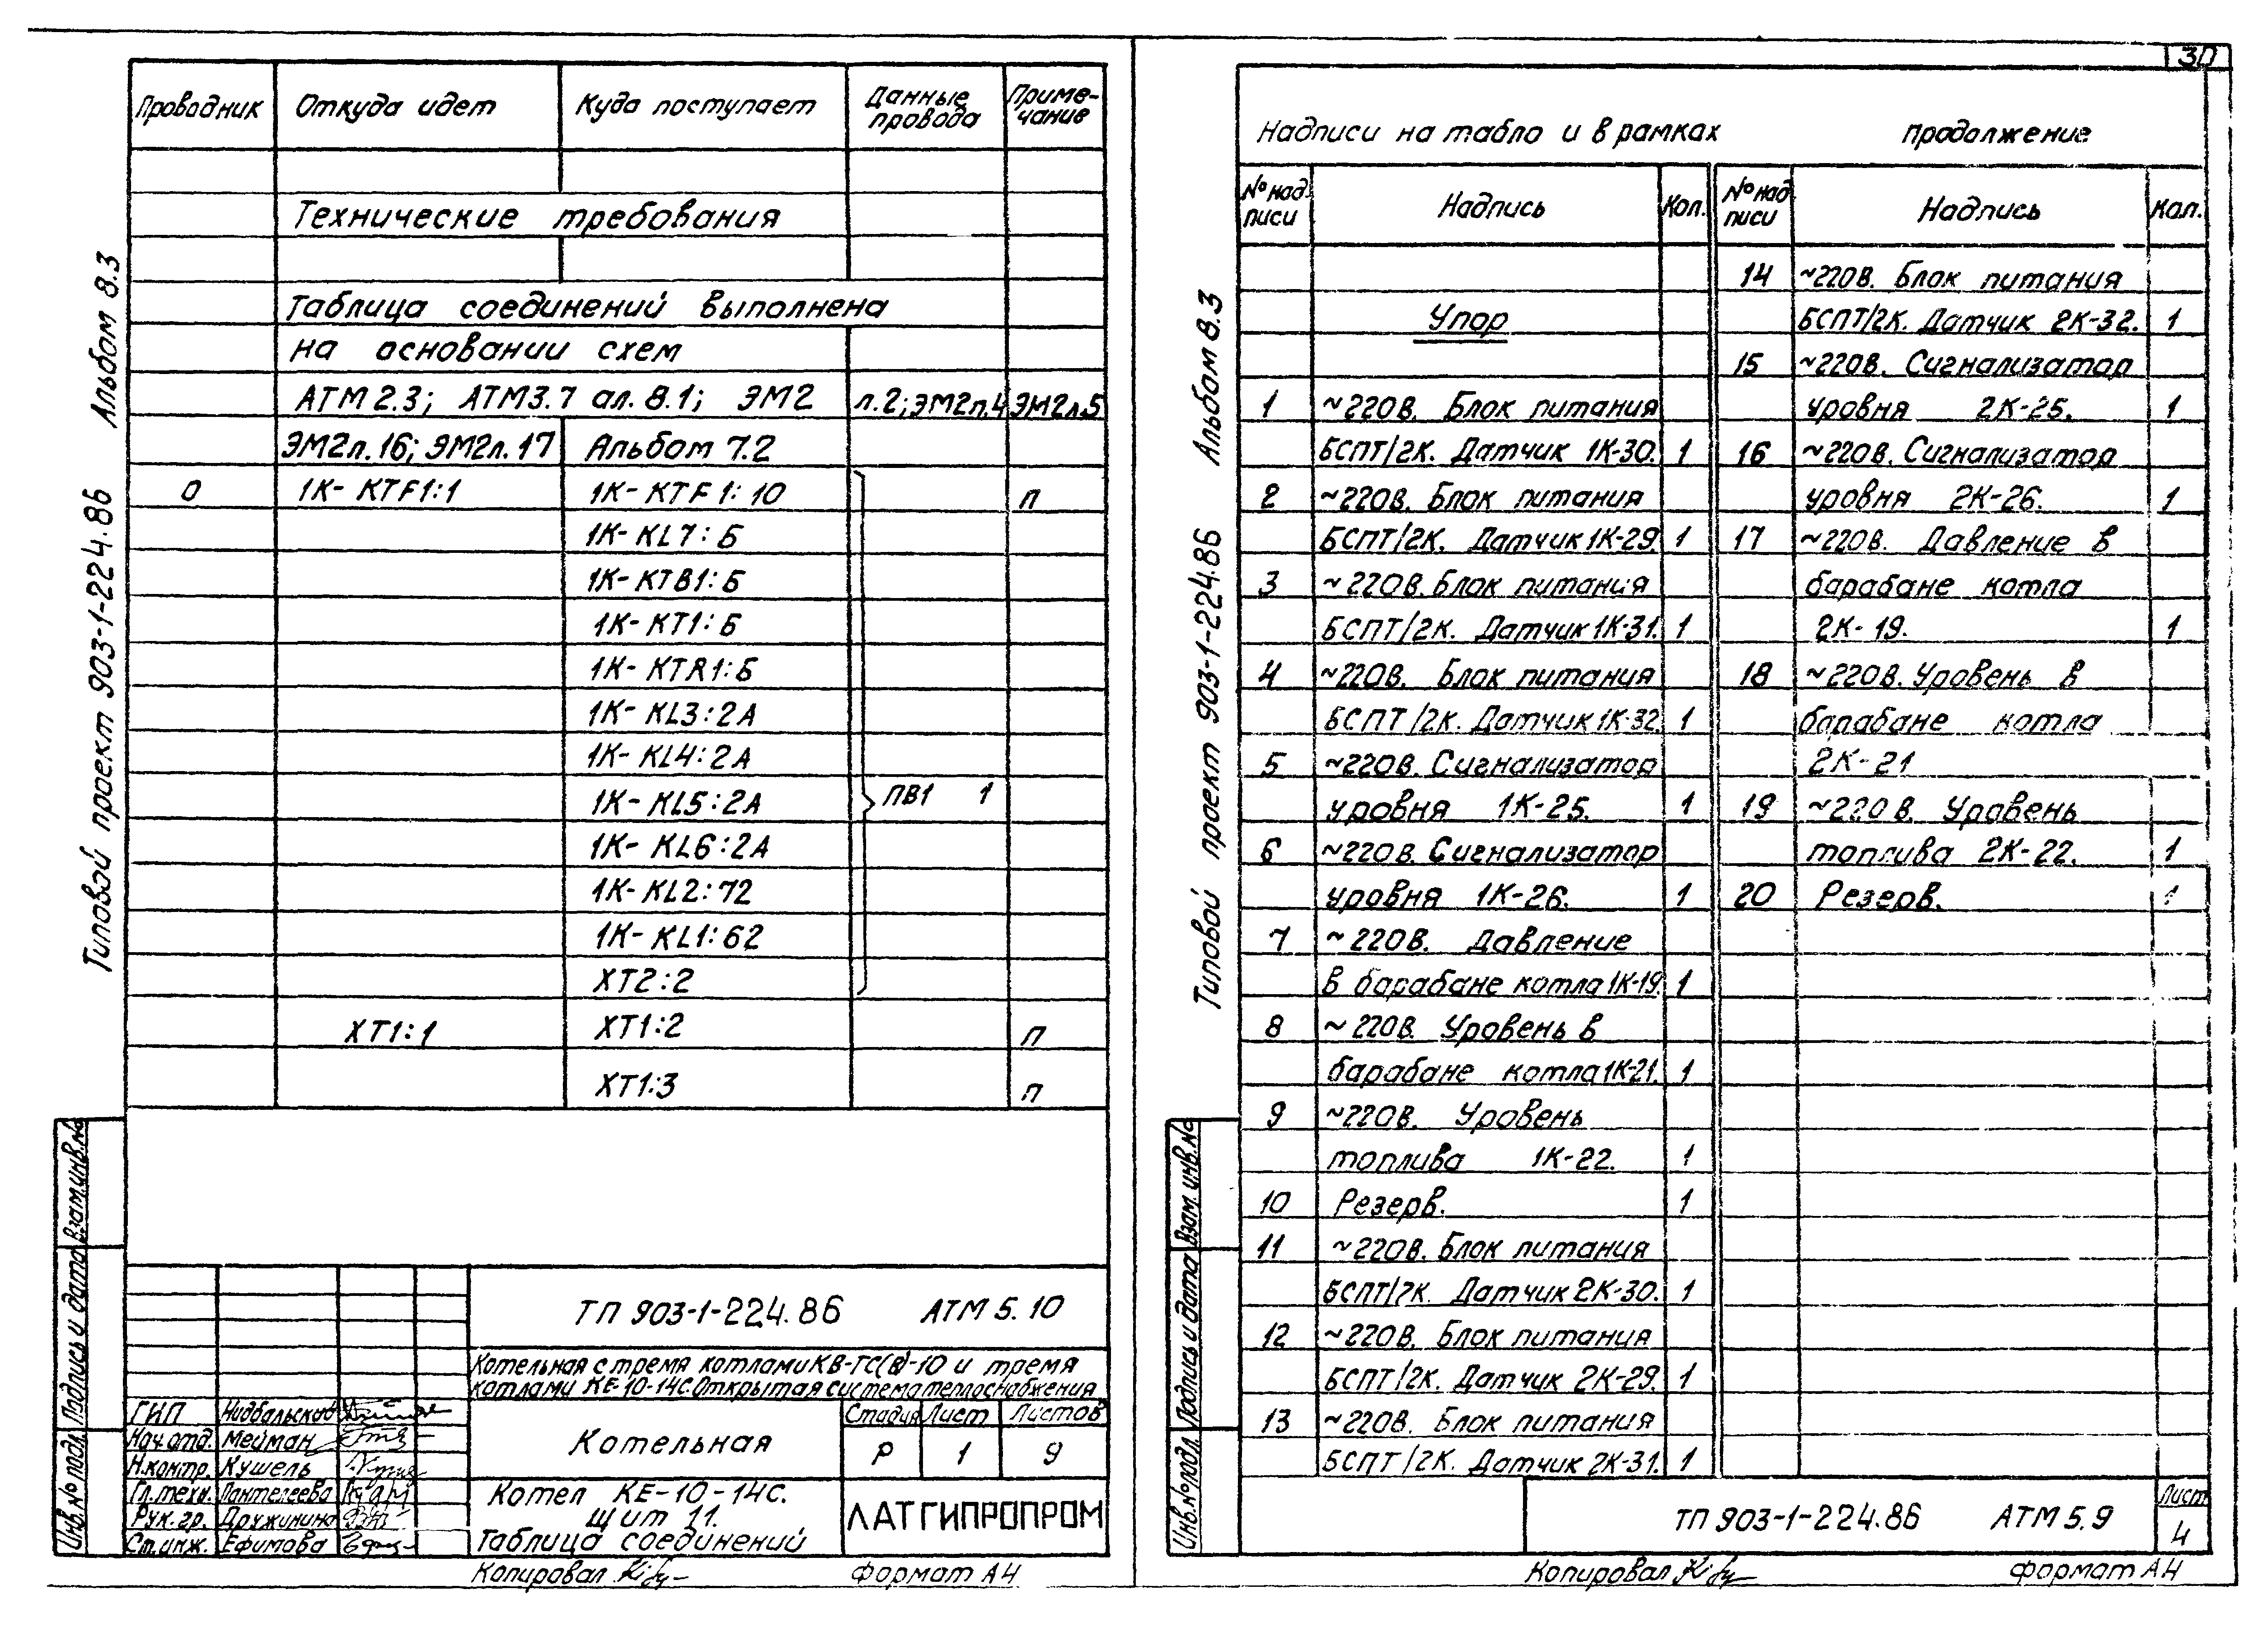 30
Альбом 8.3
Типовой проект 903-1-224.86
Проводник Откуда идет Куда поступает Данные провода Примечание
Технические требования
Таблица соединений выполнена
на основании схем
АТМ2.3; АТМ3.7 ал. 8.1; ЭМ2 л.2; ЭМ2л.4 ЭМ2л.5
ЭМ2л.16; ЭМ2л.17 Альбом 7.2
0 1К-КТF1:1 1К-КТF1:10 п
1К-КL7:Б
1К-КТВ1:Б
1К-КТ1:Б
1К-КТR1:Б
1К-КL3:2А
1К-КL4:2А
1К-КL5:2А ПВ1 1
1К-КL6:2А
1К-КL2:72
1К-КL1:62
ХТ2:2
ХТ1:1 ХТ1:2 п
ХТ1:3 п
Взам.инв.№
Подпись и дата
Инв.№ подл.
ТП 903-1-224.86 АТМ 5.10
Котельная с тремя котлами КВ-ТС(В)-10 и тремя
котлами КЕ-10-14С. Открытая система теплоснабжения
Котельная
Стадия Лист Листов
Р 1 9
ГИП Нидбальский
Нач.отд. Мейман
Н.контр. Кушель
Гл.техн. Пантелеева
Рук.гр. Дружинина
Ст.инж. Ефимова
Котел КЕ-10-14С.
Щит 11.
Таблица соединений
ЛАТГИПРОПРОМ
Копировал
формат А4
Альбом 8.3
Типовой проект 903-1-224.86
Надписи на табло и в рамках продолжение
№ надписи Надпись Кол.
Упор
1 ~220В. Блок питания
БСПТ/2К. Датчик 1К-30. 1
2 ~220В. Блок питания
БСПТ/2К. Датчик 1К-29. 1
3 ~220В. Блок питания
БСПТ/2К. Датчик 1К-31. 1
4 ~220В. Блок питания
БСПТ/2К. Датчик 1К-32. 1
5 ~220В. Сигнализатор
уровня 1К-25. 1
6 ~220В. Сигнализатор
уровня 1К-26. 1
7 ~220В. Давление
в барабане котла 1К-19. 1
8 ~220В. Уровень в
барабане котла 1К-21. 1
9 ~220В. Уровень
топлива 1К-22. 1
10 Резерв. 1
11 ~220В. Блок питания
БСПТ/2К. Датчик 2К-30. 1
12 ~220В. Блок питания
БСПТ/2К. Датчик 2К-29. 1
13 ~220В. Блок питания
БСПТ/2К. Датчик 2К-31. 1
№ надписи Надпись Кол.
14 ~220В. Блок питания
БСПТ/2К. Датчик 2К-32. 1
15 ~220В. Сигнализатор
уровня 2К-25. 1
16 ~220В. Сигнализатор
уровня 2К-26. 1
17 ~220В. Давление в
барабане котла
2К-19. 1
18 ~220В. Уровень в
барабане котла
2К-21
19 ~220В. Уровень
топлива 2К-22. 1
20 Резерв. 1
Взам. инв.№
Подпись и дата
Инв.№ подл.
ТП 903-1-224.86 АТМ 5.9
Лист
4
Копировал
формат А4